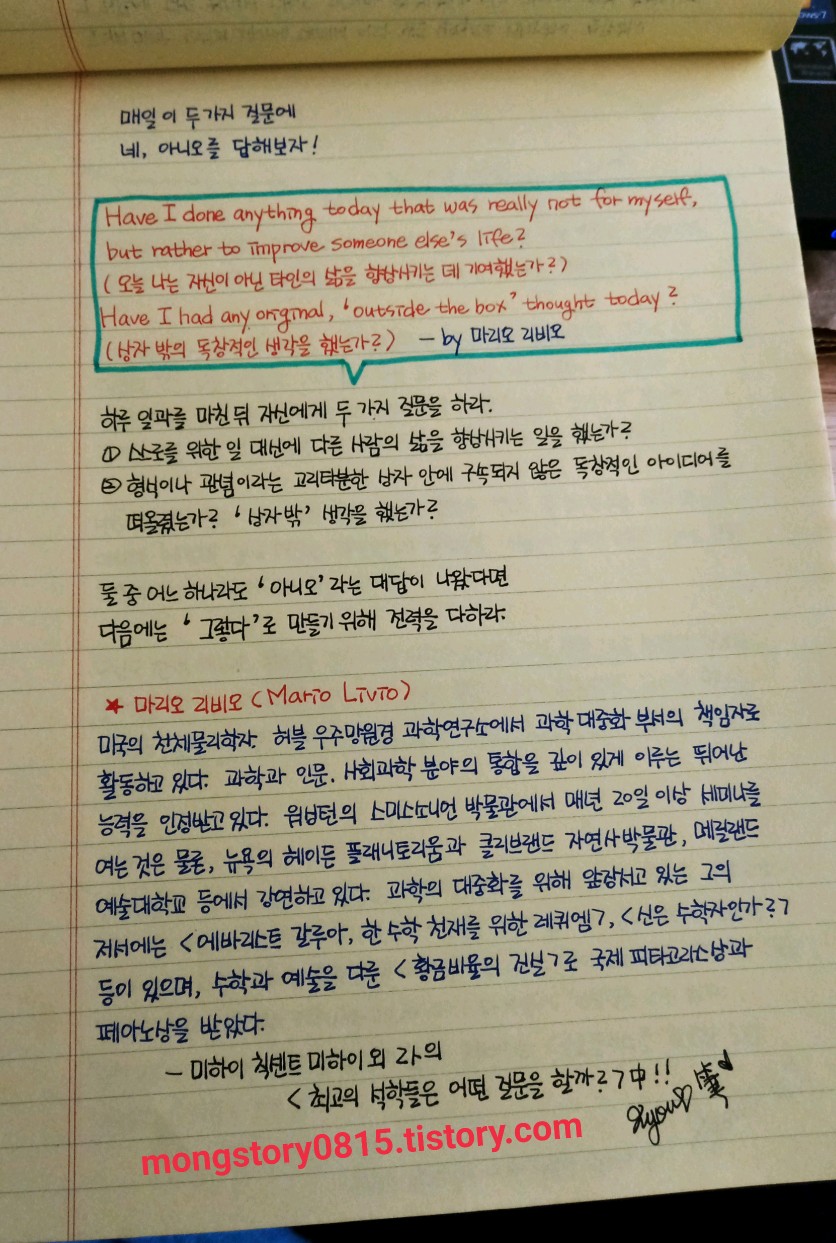 매일 이 두가지 질문에
네, 아니오를 답해보자!
Have I done anything today that was really not for myself,
but rather to improve someone else's life?
(오늘 나는 자신이 아닌 타인의 삶을 향상시키는 데 기여했는가?)
Have I had any original, 'outside the box' thought today?
(상자 밖의 독창적인 생각을 했는가?) - by 마리오 리비오
하루 일과를 마친 뒤 자신에게 두 가지 질문을 하라.
① 스스로를 위한 일 대신에 다른 사람의 삶을 향상시키는 일을 했는가?
② 형식이나 관념이라는 고리타분한 상자 안에 구속되지 않은 독창적인 아이디어를
떠올렸는가? '상자 밖' 생각을 했는가?
둘 중 어느 하나라도 '아니오'라는 대답이 나왔다면
다음에는 '그렇다'로 만들기 위해 전력을 다하라.
★ 마리오 리비오 (Mario Livio)
미국의 천체물리학자. 허블 우주망원경 과학연구소에서 과학 대중화 부서의 책임자로
활동하고 있다. 과학과 인문, 사회과학 분야의 통합을 깊이 있게 이루는 뛰어난
능력을 인정받고 있다. 워싱턴의 스미소니언 박물관에서 매년 20일 이상 세미나를
여는 것은 물론, 뉴욕의 헤이든 플래니토리움과 클리브랜드 자연사 박물관, 메릴랜드
예술대학교 등에서 강연하고 있다. 과학의 대중화를 위해 앞장서고 있는 그의
저서에는 <에바리스트 갈루아, 한 수학 천재를 위한 레퀴엠>, <신은 수학자인가?>
등이 있으며, 수학과 예술을 다룬 <황금비율의 진실>로 국제 피타고라스상과
페아노상을 받았다.
- 미하이 칙센트미하이 외 2人의
<최고의 석학들은 어떤 질문을 할까?> 中!!
mongstory0815.tistory.com